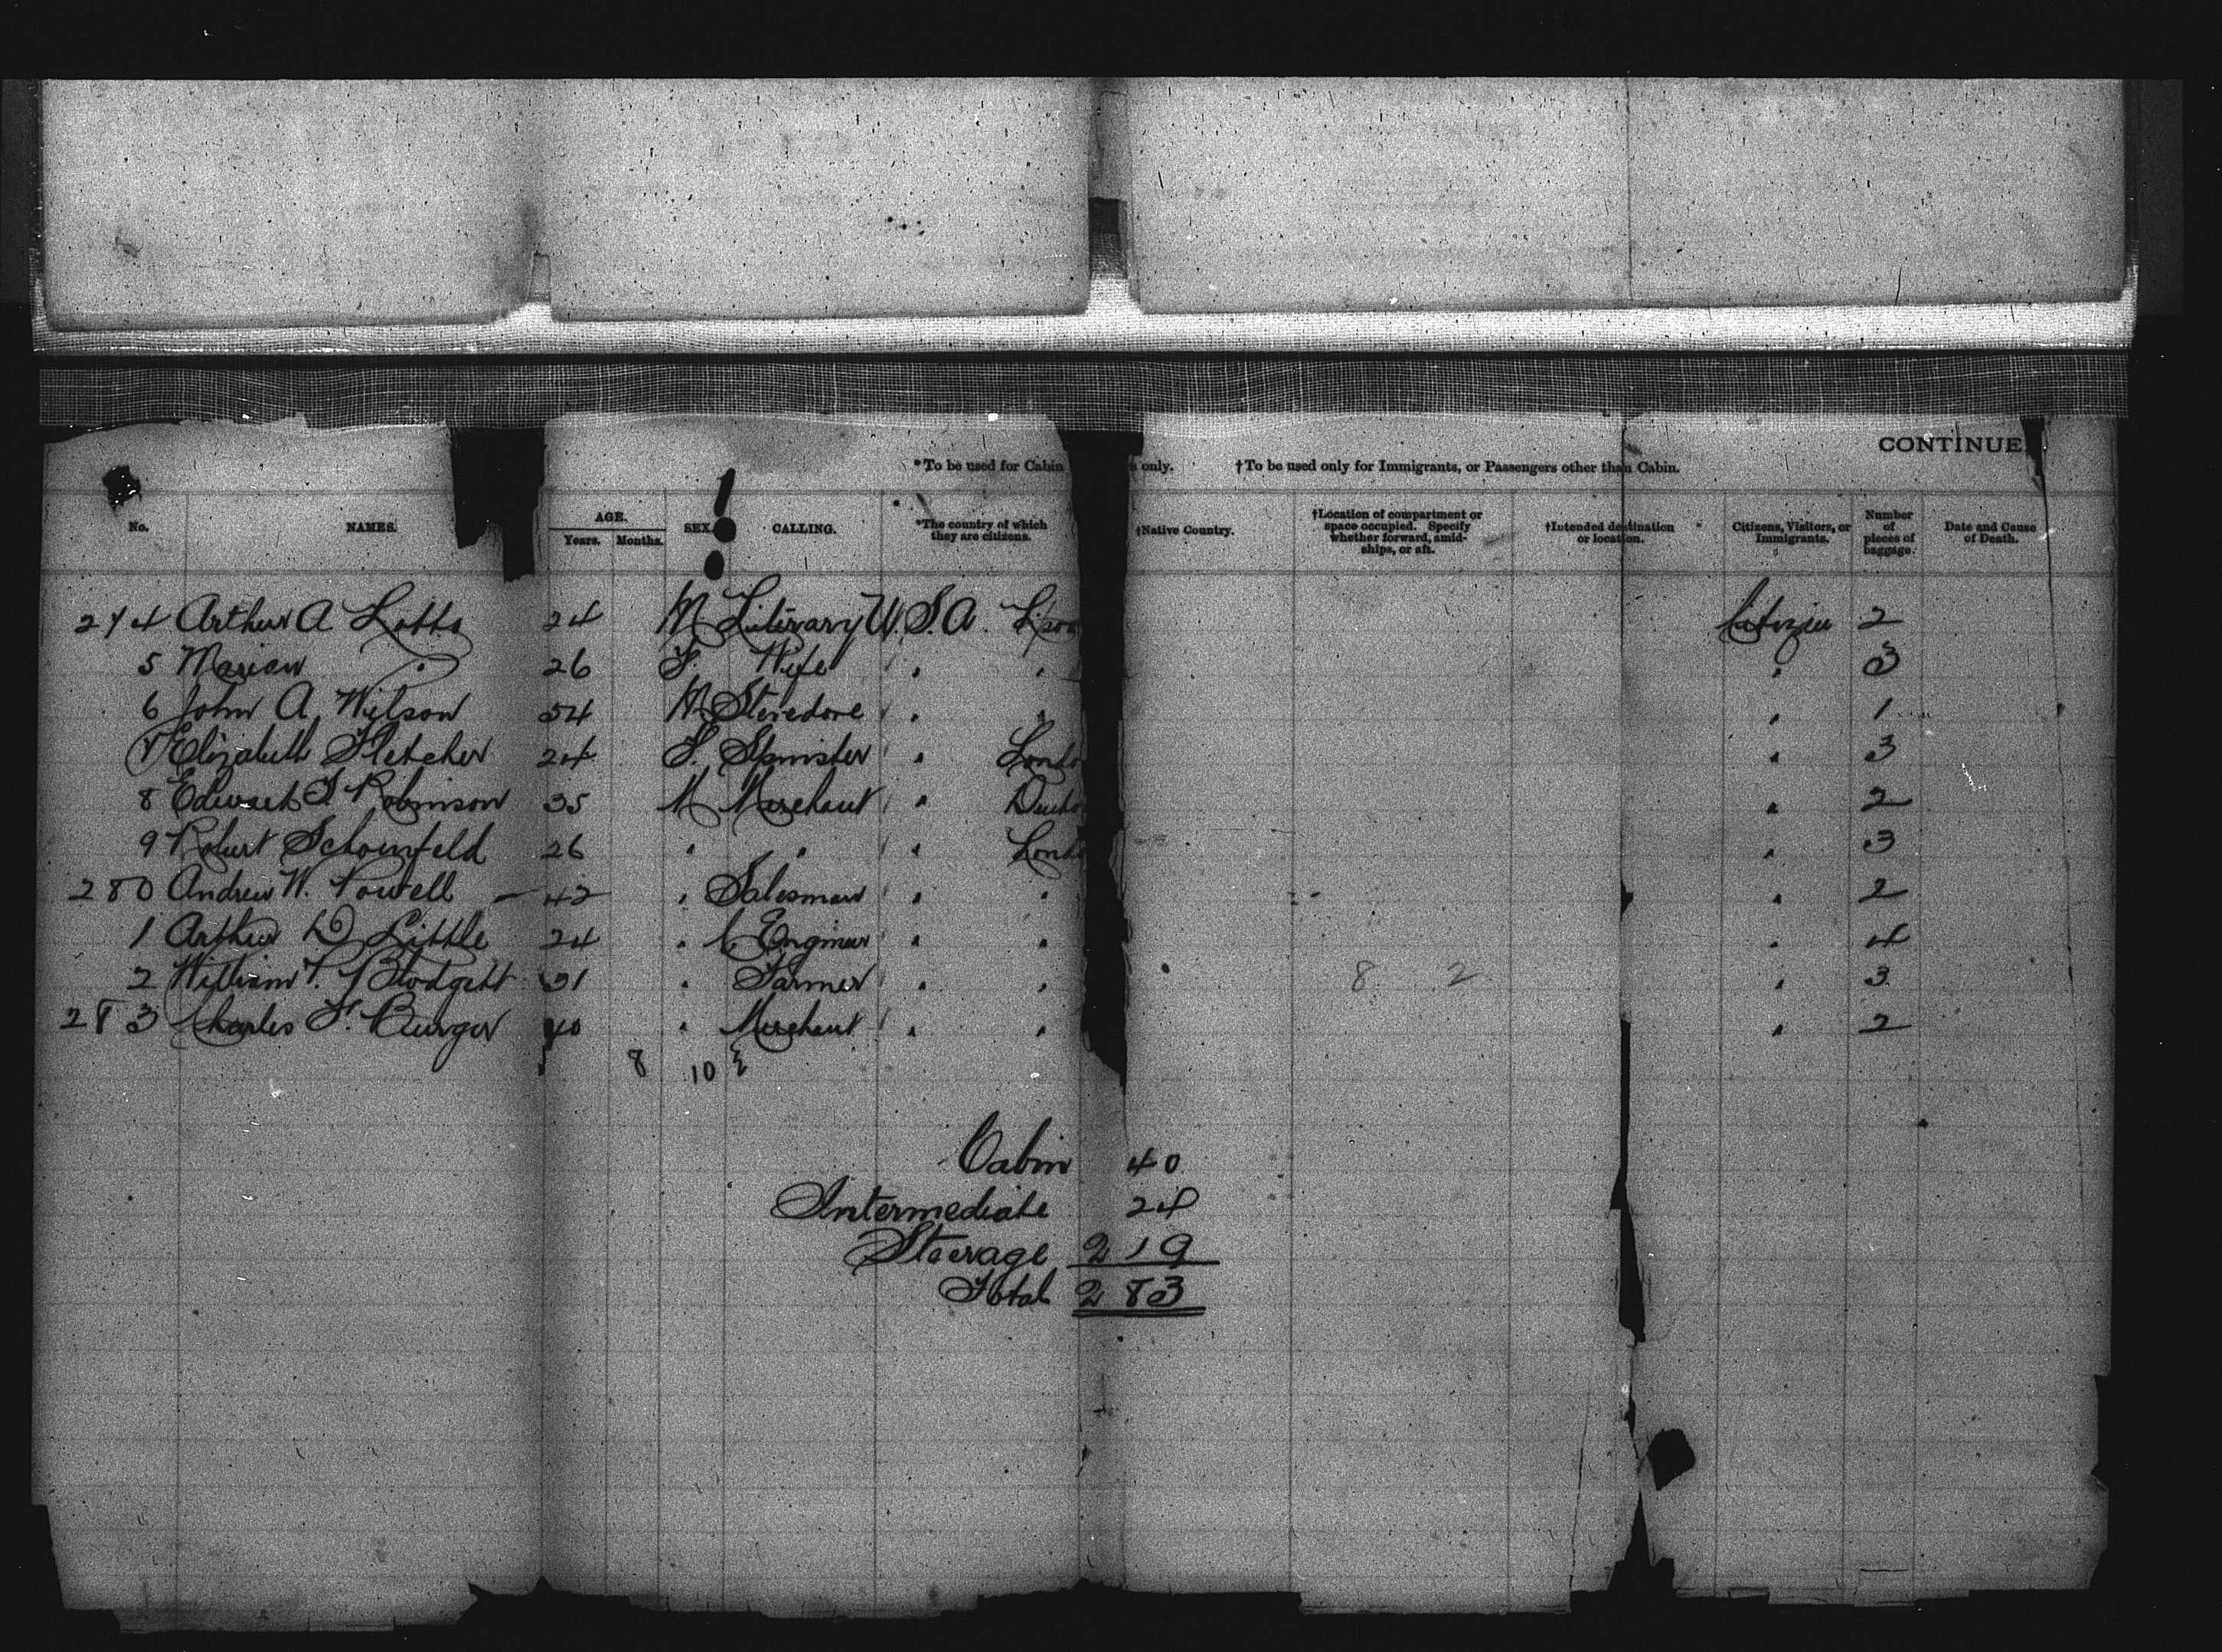 CONTINUE
*To be used for Cabin s only. †To be used only for Immigrants, or Passengers other than Cabin.
No. NAMES. AGE. Years. Months. SEX. CALLING. *The country of which they are citizens. †Native Country. †Location of compartment or space occupied. Specify whether forward, amidships, or aft. †Intended destination or location. Citizens, Visitors, or Immigrants. Number of pieces of baggage. Date and Cause of Death.
274 Arthur A 24 M Literary U.S.A. Citizen 2
5 Marian " 26 F. Wife " " " 3
6 John A. Wilson 54 M Stevedore " " " 1
7 Elizabeth Fletcher 24 F. Spinster " Londo " 3
8 Edward F. Robinson 35 M Merchant " " 2
9 Robert Schoenfeld 26 " " " Lond " 3
280 Andrew W. Powell - 42 " Salesman " " " 2
1 Arthur D Little 24 " C Engineer " " " 4
2 William T. Blodgett 31 " Farmer " " 8 2 " 3
283 Charles F. Burger 40 " Merchant " " " 2
8 10
Cabin 40
Intermediate 24
Steerage 219
Total 283